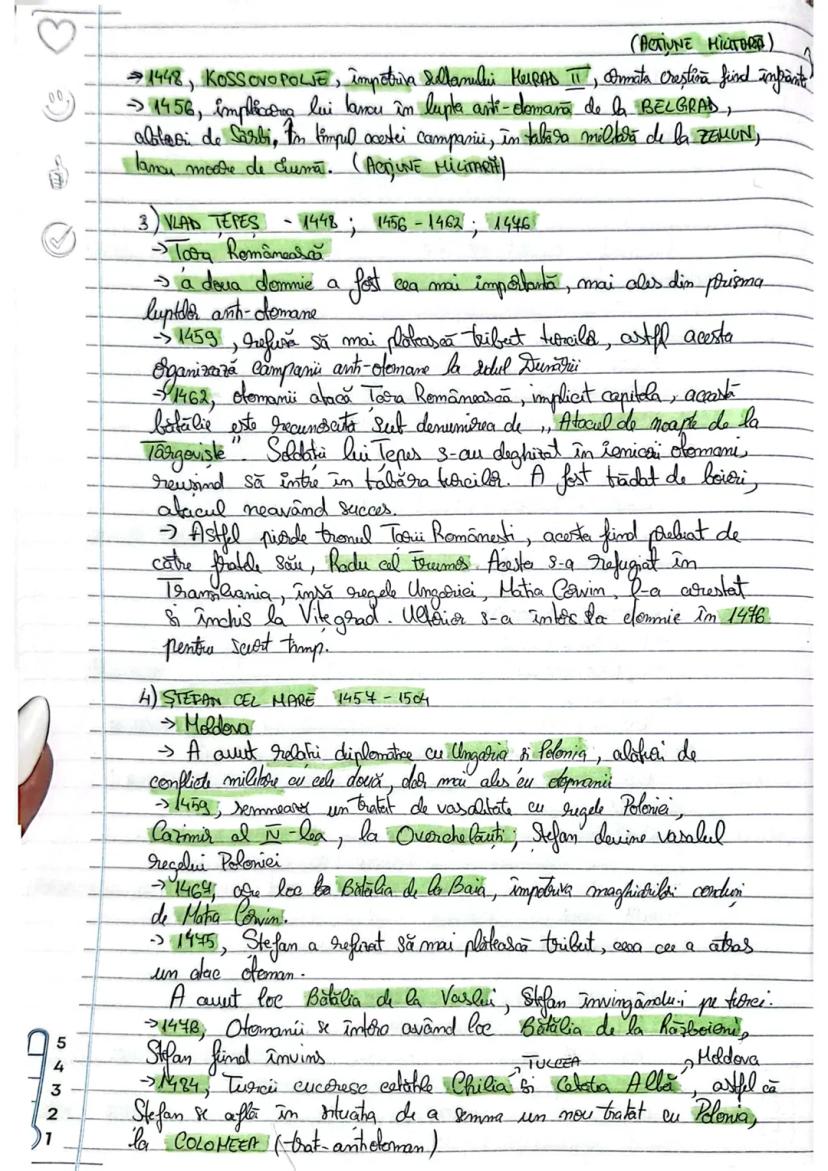 (ACȚIUNE MILITARĂ)
→ 1448, KOSSOVOPOLJE, împotriva Sultanului MURAD II, armata creștină fiind înfrântă
→ 1456, implicarea lui Iancu în lupta anti-otomană de la BELGRAD,
alături de Sârbi, În timpul acestei campanii, în tabăra militară de la ZEMUN,
Iancu moare de ciumă. (ACȚIUNE MILITARĂ)
3) VLAD ȚEPEȘ - 1448 ; 1456 - 1462 ; 1476
→ Țara Românească
→ a doua domnie a fost cea mai importantă, mai ales din prisma
luptelor anti-otomane
→ 1459, refuză să mai plătească tribut turcilor, astfel acesta
organizează campanii anti-otomane la sudul Dunării
→ 1462, otomanii atacă Țara Românească, implicit capitala, această
bătălie este recunoscută sub denumirea de ,, Atacul de noapte de la
Târgoviște". Soldații lui Țepeș s-au deghizat în ieniceri otomani,
reușind să intre în tabăra turcilor. A fost trădat de boieri,
atacul neavând succes.
→ Astfel pierde tronul Țării Românești, acesta fiind preluat de
către fratele său, Radu cel Frumos. Acesta s-a refugiat în
Transilvania, însă regele Ungariei, Matia Corvin, l-a arestat
și închis la Vișegrad. Ulterior s-a întors la domnie în 1476
pentru scurt timp.
4) ȘTEFAN CEL MARE 1457 - 1504
→ Moldova
→ A avut relații diplomatice cu Ungaria și Polonia, alături de
conflicte militare cu cele două, dar mai ales cu otomanii
→ 1459, semnează un tratat de vasalitate cu regele Poloniei,
Cazimir al IV-lea, la Overchelăuți; Ștefan devine vasalul
regelui Poloniei
→ 1467, are loc la Bătălia de la Baia, împotriva maghiarilor conduși
de Matia Corvin.
→ 1475, Ștefan a refuzat să mai plătească tribut, ceea ce a atras
un atac otoman.
A avut loc Bătălia de la Vaslui, Ștefan învingându-i pe turci.
→ 1476, Otomanii se întorc având loc Bătălia de la Războieni,
Ștefan fiind învins
→ TULCEA → Moldova
→ 1484, Turcii cuceresc cetățile Chilia și Cetatea Albă, astfel că
Ștefan se află în situația de a semna un nou tratat cu Polonia,
la COLOMEEA (-trat-antiotoman)
5
4
3
2
1